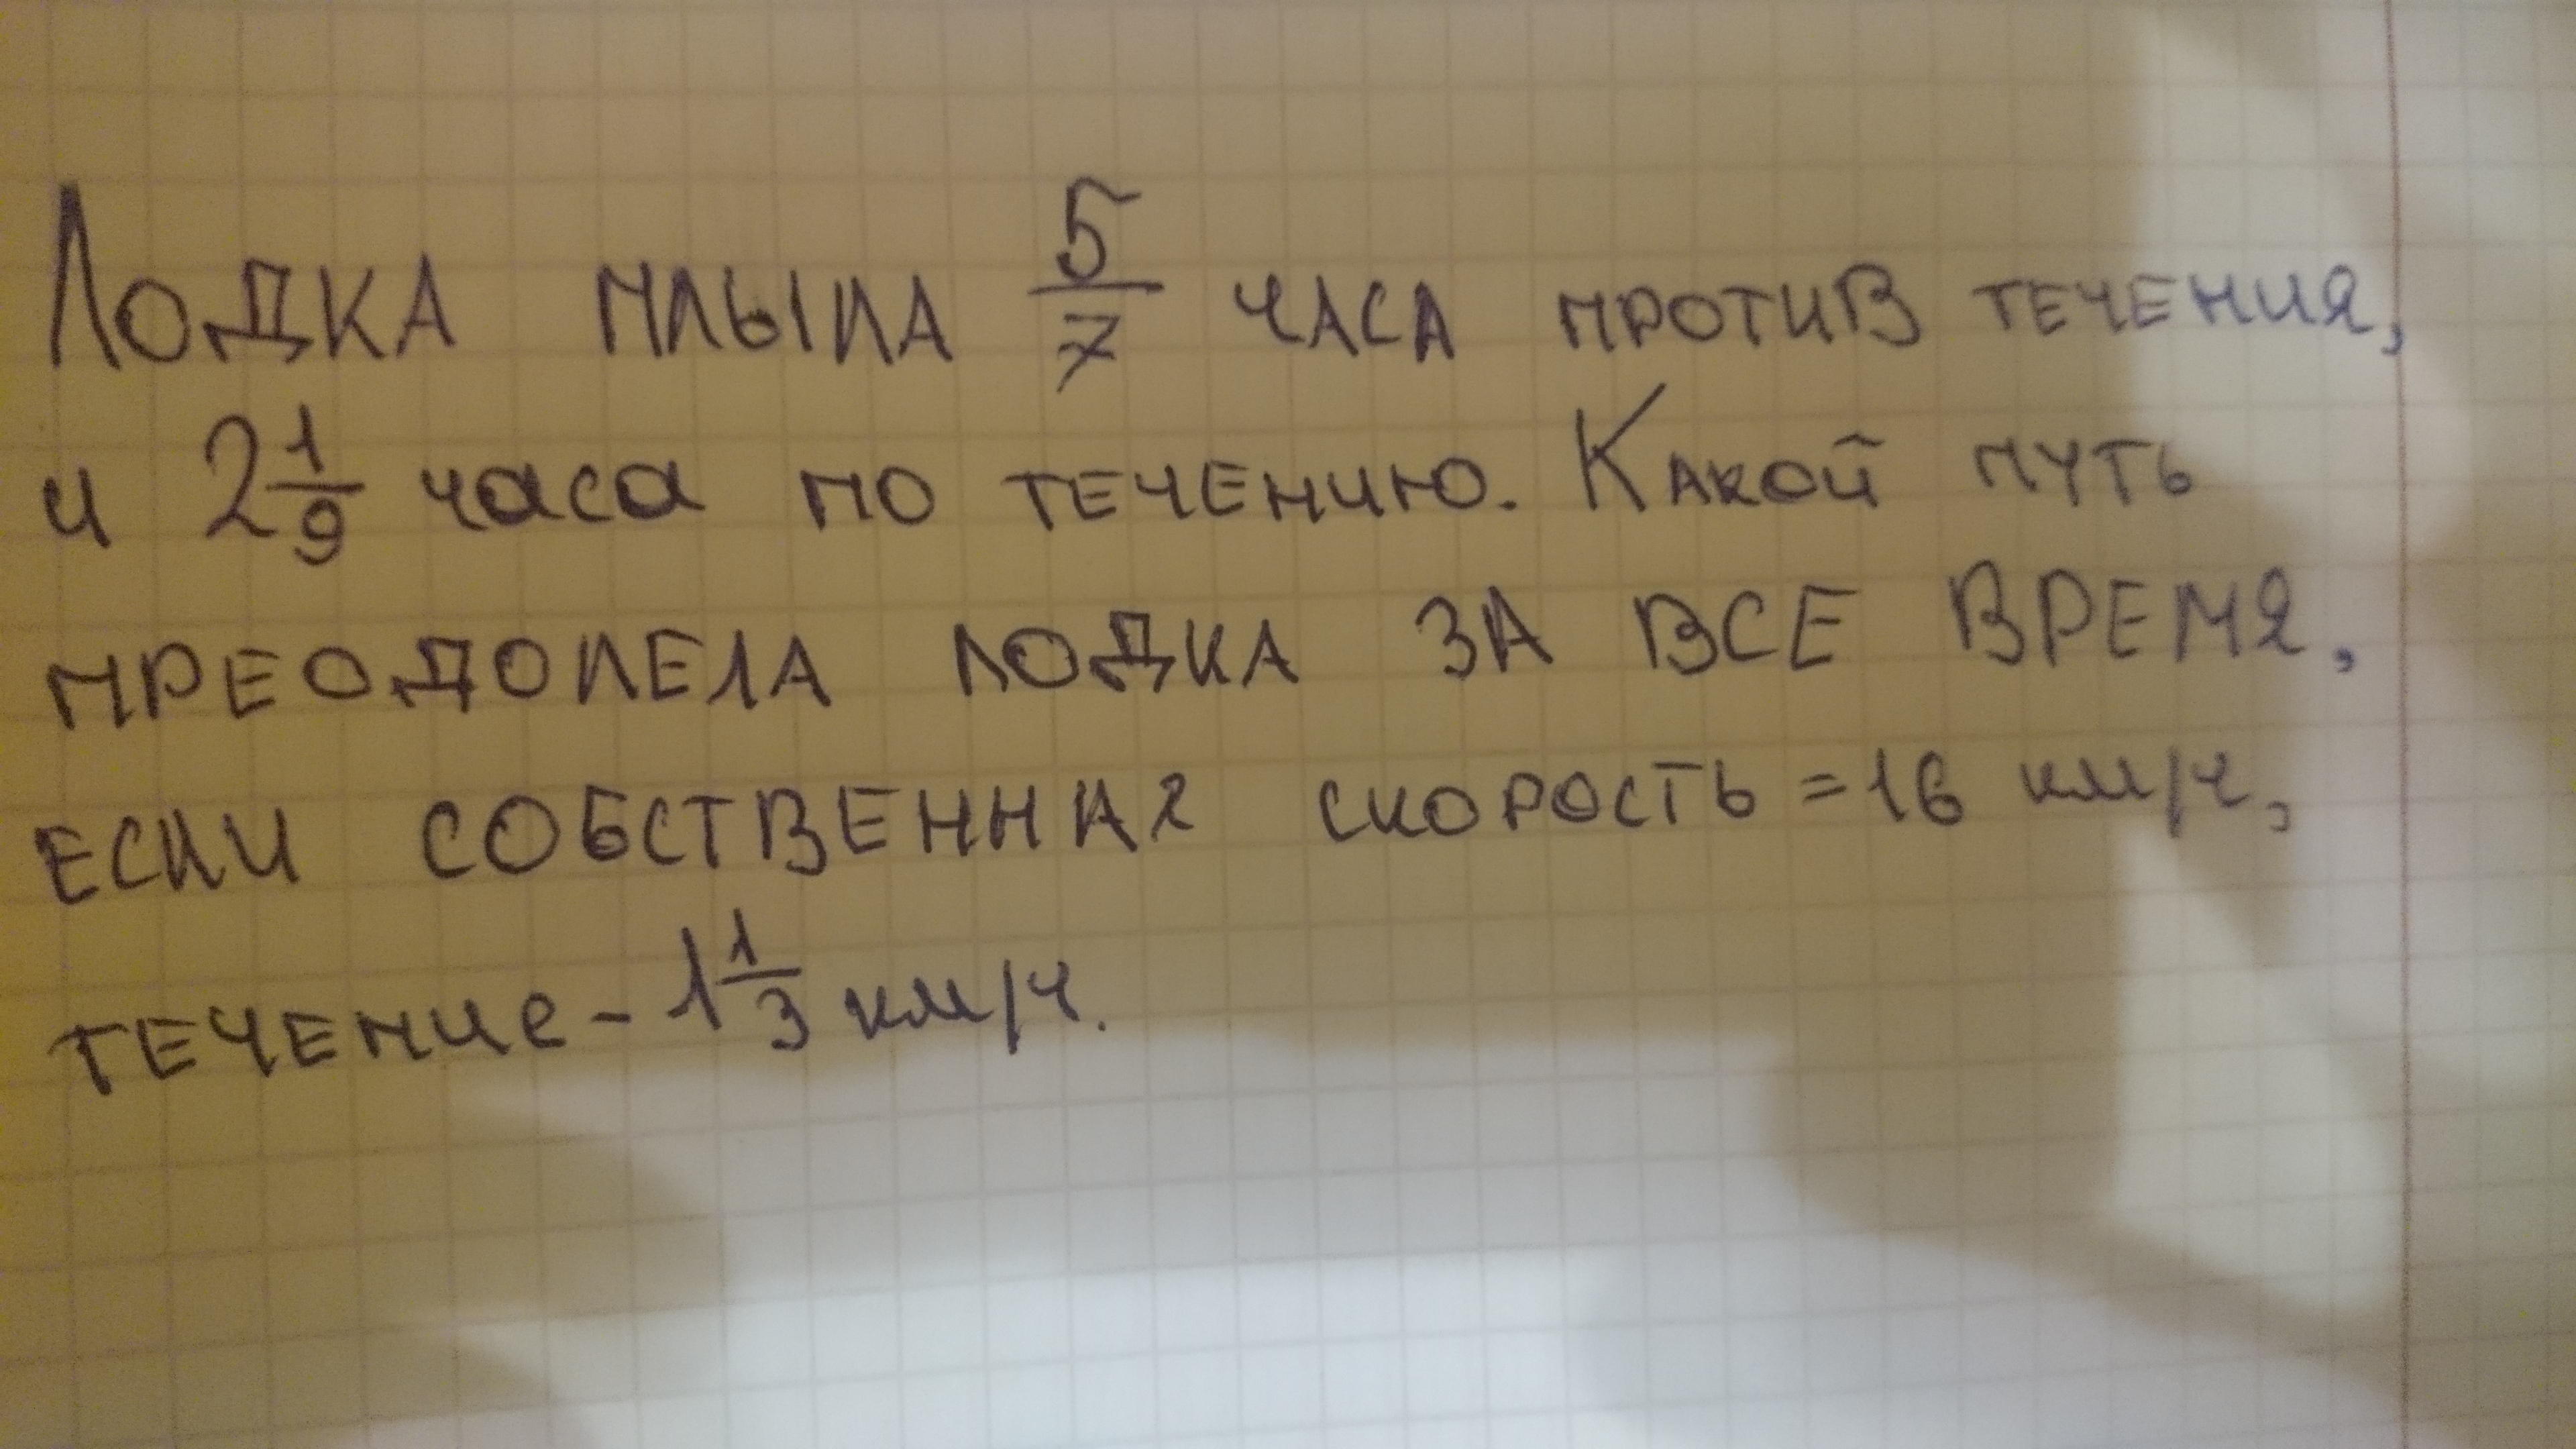 Лодка плыла 5/7 часа против течения,
и 2 1/9 часа по течению. Какой путь
преодолела лодка за все время,
если собственная скорость = 16 км/ч,
течение - 1 1/3 км/ч.